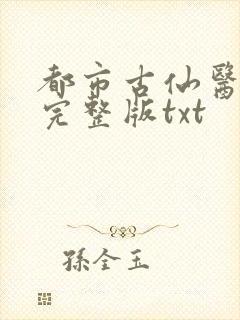 都市古仙醫
完整版txt
孫全玉